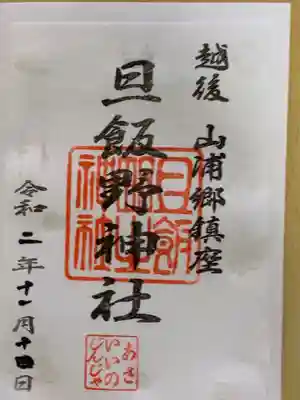 越後 山浦郷鎮座
旦飯野神社
令和二年十一月十四日
旦飯
神社
あさ
いいの
じんじゃ